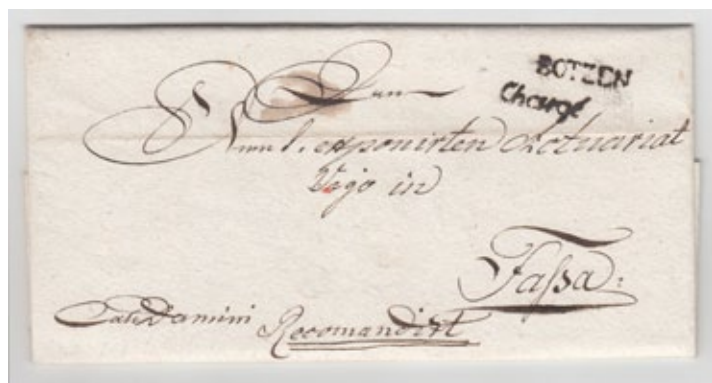 BOTZEN
Chargé
Dem
exponirten Actuariat
Vigo in
Fassa
Recomandirt